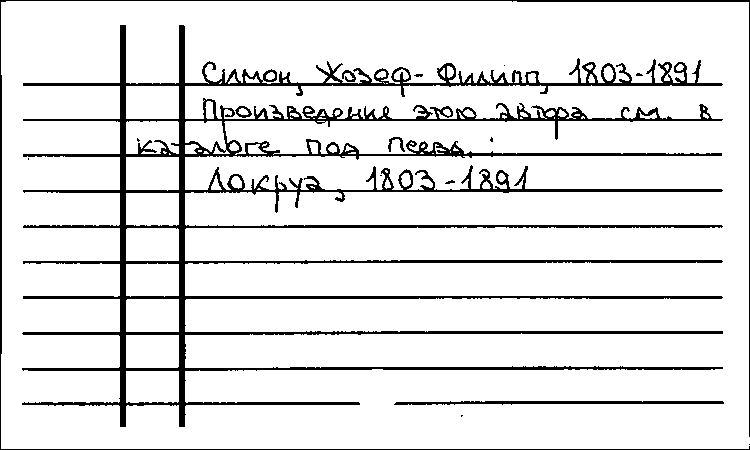 Симон, Жозеф-Филипп, 1803-1891
Произведение этого автора см. в
каталоге под псевд.:
Локруа, 1803-1891